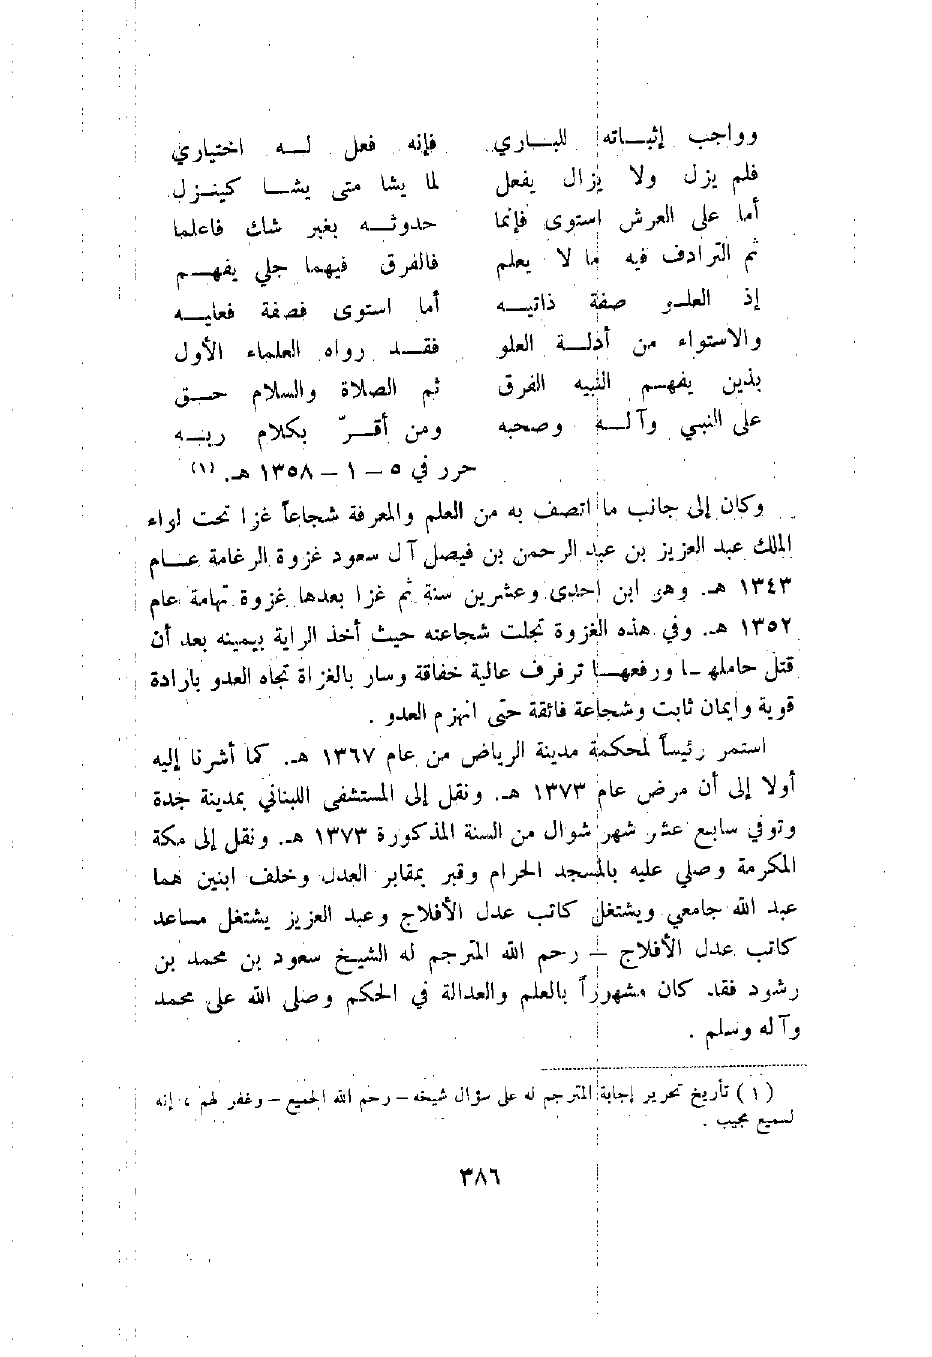 وواجب إثباته للباري فإنه فعل له اختياري
فلم يزل ولا يزال يفعل لما يشا متى يشا كينزل
أما على العرش استوى فإنما حدوثه بغير شك فاعلما
ثم الترادف فيه ما لا يعلم فالفرق فيهما جلي يفهم
إذ العلو صفة ذاتيه أما استوى فصفة فعليه
والاستواء من أدلة العلو فقد رواه العلماء الأول
بذين يفهم النبيه الفرق ثم الصلاة والسلام حق
على النبي وآله وصحبه ومن أقرّ بكلام ربه
حرر في ٥ – ١ – ١٣٥٨ هـ. (١)
وكان إلى جانب ما اتصف به من العلم والمعرفة شجاعاً غزا تحت لواء
الملك عبد العزيز بن عبد الرحمن بن فيصل آل سعود غزوة الرغامة عام
١٣٤٣ هـ. وهو ابن احدى وعشرين سنة ثم غزا بعدها غزوة تهامة عام
١٣٥٢ هـ. وفي هذه الغزوة تجلت شجاعته حيث أخذ الراية بيمينه بعد أن
قتل حاملها ورفعها ترفرف عالية خفاقة وسار بالغزاة تجاه العدو بارادة
قوية وايمان ثابت وشجاعة فائقة حتى انهزم العدو .
استمر رئيساً لمحكمة مدينة الرياض من عام ١٣٦٧ هـ. كما أشرنا إليه
أولا إلى أن مرض عام ١٣٧٣ هـ. ونقل إلى المستشفى اللبناني بمدينة جدة
وتوفي سابع عشر شهر شوال من السنة المذكورة ١٣٧٣ هـ. ونقل إلى مكة
المكرمة وصلي عليه بالمسجد الحرام وقبر بمقابر العدل وخلف ابنين هما
عبد الله جامعي ويشتغل كاتب عدل الأفلاج وعبد العزيز يشتغل مساعد
كاتب عدل الأفلاج – رحم الله المترجم له الشيخ سعود بن محمد بن
رشود فقد كان مشهوراً بالعلم والعدالة في الحكم وصلى الله على محمد
وآله وسلم .
(١) تأريخ تحرير إجابة المترجم له على سؤال شيخه – رحم الله الجميع – وغفر لهم ، إنه
لسميع مجيب .
٣٨٦